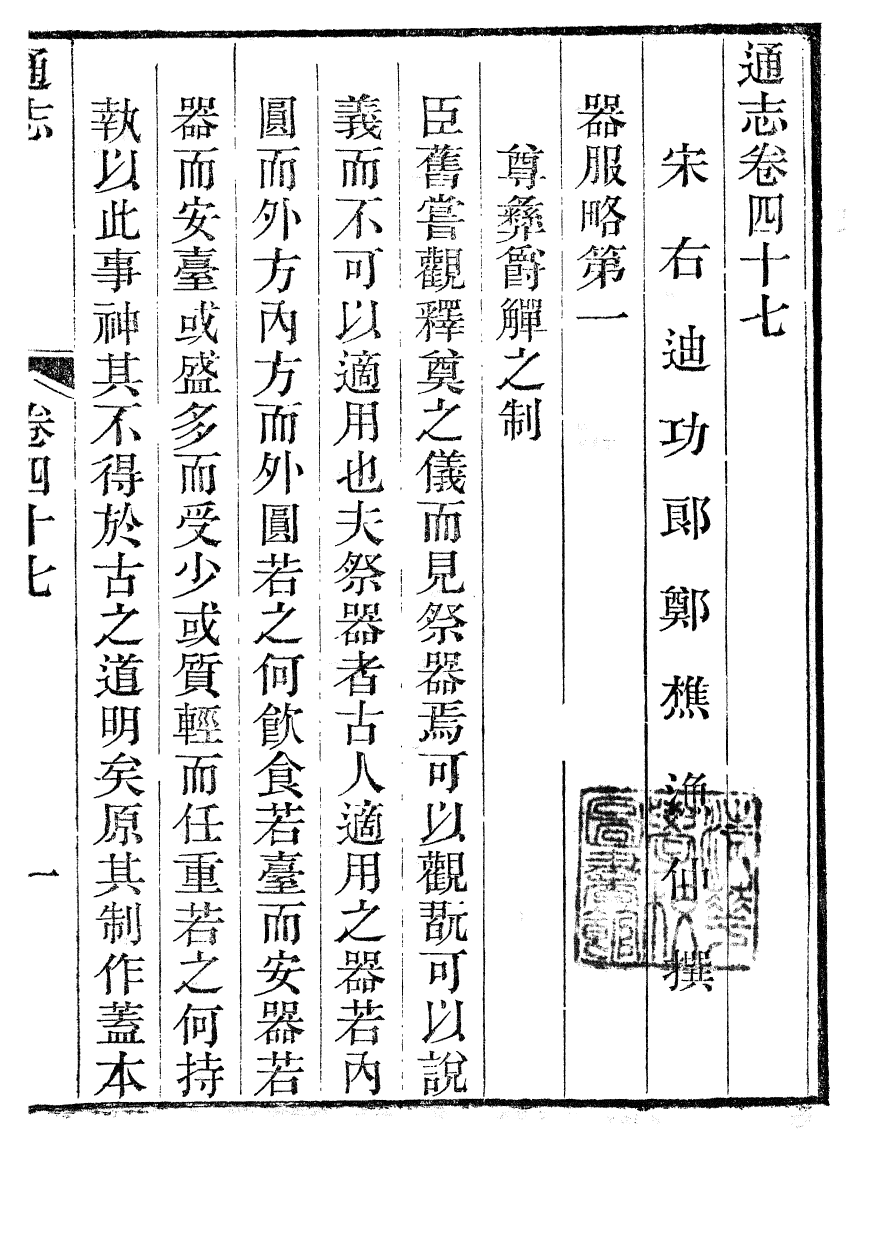 通志卷四十七
宋右迪功郎鄭樵漁仲撰
器服略第一
尊彝爵觶之制
臣舊嘗觀釋奠之儀而見祭器焉可以觀翫可以說
義而不可以適用也夫祭器者古人適用之器若內
圓而外方內方而外圓若之何飮食若臺而安器若
器而安臺或盛多而受少或質輕而任重若之何持
執以此事神其不得於古之道明矣原其制作蓋本
通志
卷四十七
一